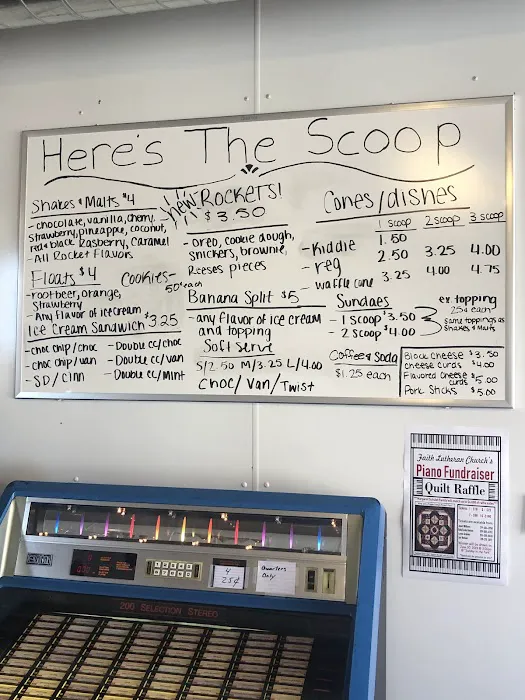 Here's The Scoop
Shakes & Malts $4
- chocolate, vanilla, cherry,
strawberry, pineapple, coconut,
red & black Rasberry, Caramel
- All Rocket Flavors
Floats $4
- rootbeer, orange,
Strawberry
- Any flavor of icecream
Cookies-
50¢ each
Ice Cream Sandwich $3.25
- choc chip/choc
- choc chip/van
- SD/cinn
- Double cc/choc
- Double cc/van
- Double cc/mint
new Rockets!
$3.50
- oreo, cookie dough,
snickers, brownie,
Reeses pieces
Banana Split $5
- any flavor of ice cream
and topping
Soft serve
S/2.50 M/3.25 L/4.00
Choc/Van/Twist
Cones/dishes
1 scoop 2 scoop 3 scoop
- Kiddie 1.50
- reg 2.50 3.25 4.00
- waffle cone 3.25 4.00 4.75
Sundaes
- 1 Scoop $3.50
- 2 Scoop $4.00
ex topping
25¢
same toppings as
Shakes & Malts
Coffee & Soda
$1.25 each
Block cheese $3.50
cheese curds $4.00
Flavored cheese
curds $5.00
Pork Sticks $5.00
Faith Lutheran Church's
Piano Fundraiser
Quilt Raffle
4
25¢
Quarters
Only
200 SELECTION STEREO